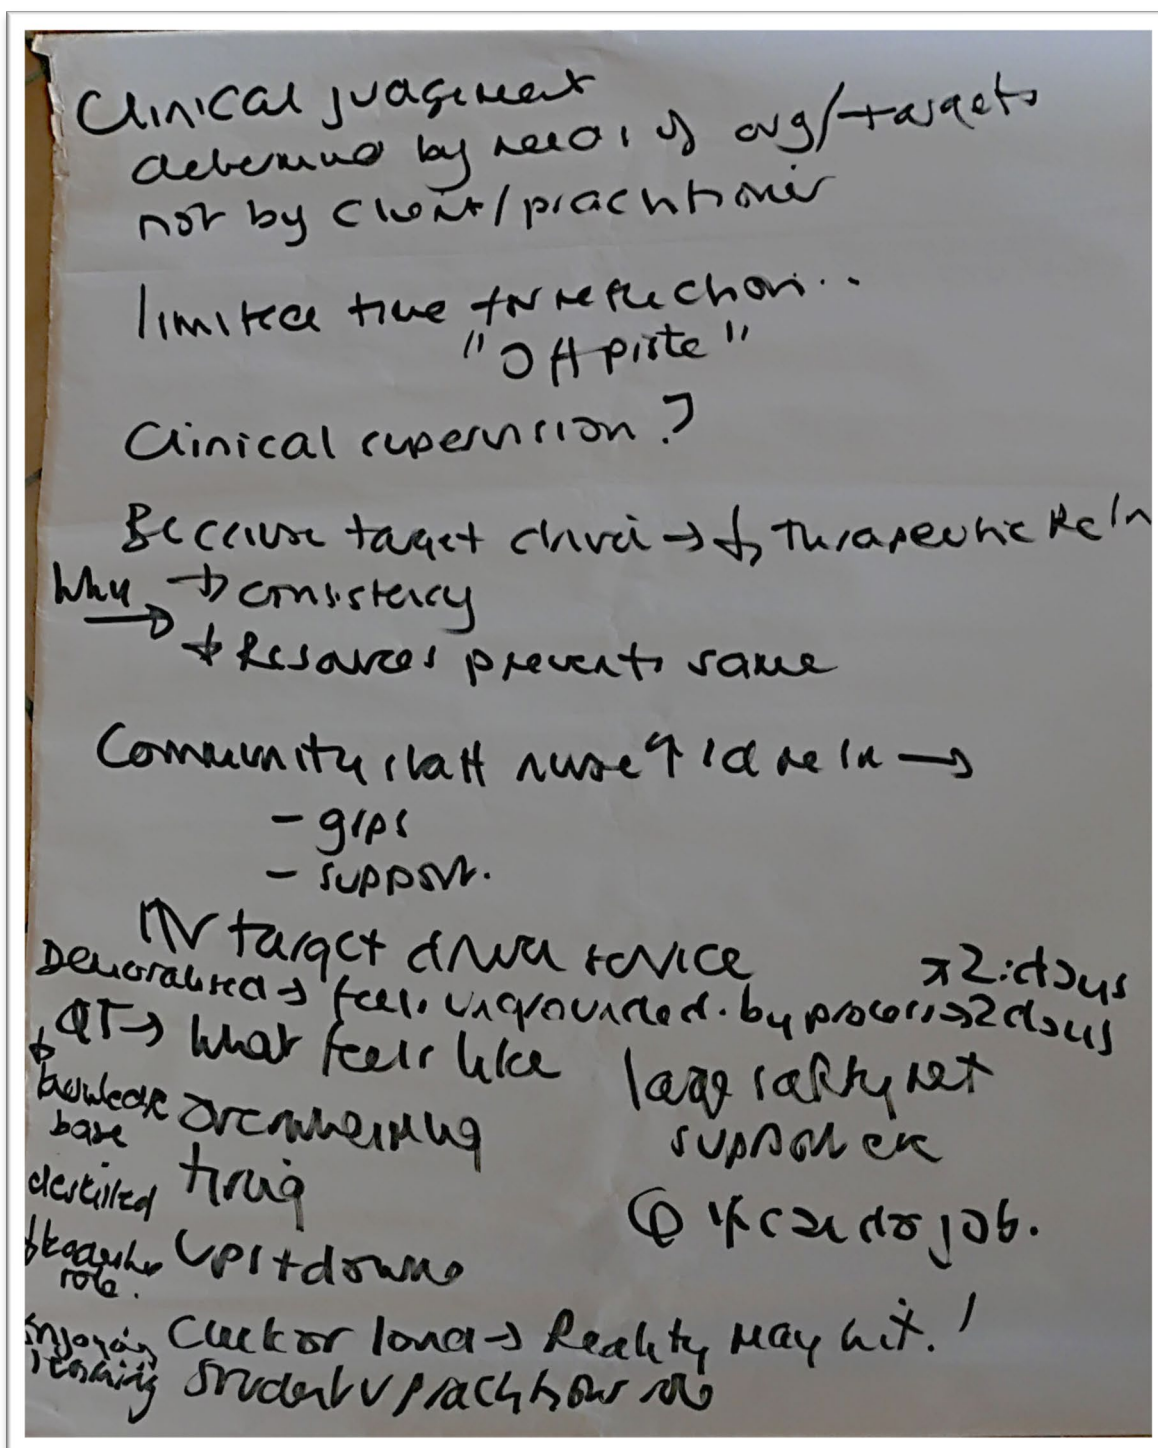 Clinical judgement
determined by needs of org/targets
not by client/practitioner
limited time for reflection..
"Off piste"
Clinical supervision?
Because target driven → ↓ Therapeutic Reln
Why → ↓ consistency
↓ Resources prevents same
Community staff nurse ↑ id reln →
- grps
- support.
target driven service
x2 : days
Demoralised → feels ungrounded. by process → 2 days
QT → What feels like
large safety net
↓ knowledge base
overwhelming
support
deskilled
tiring
Q if can do job.
role.
Ups + downs
Enjoying learning
Cuckoo land → Reality may hit!
Student v practitioner role